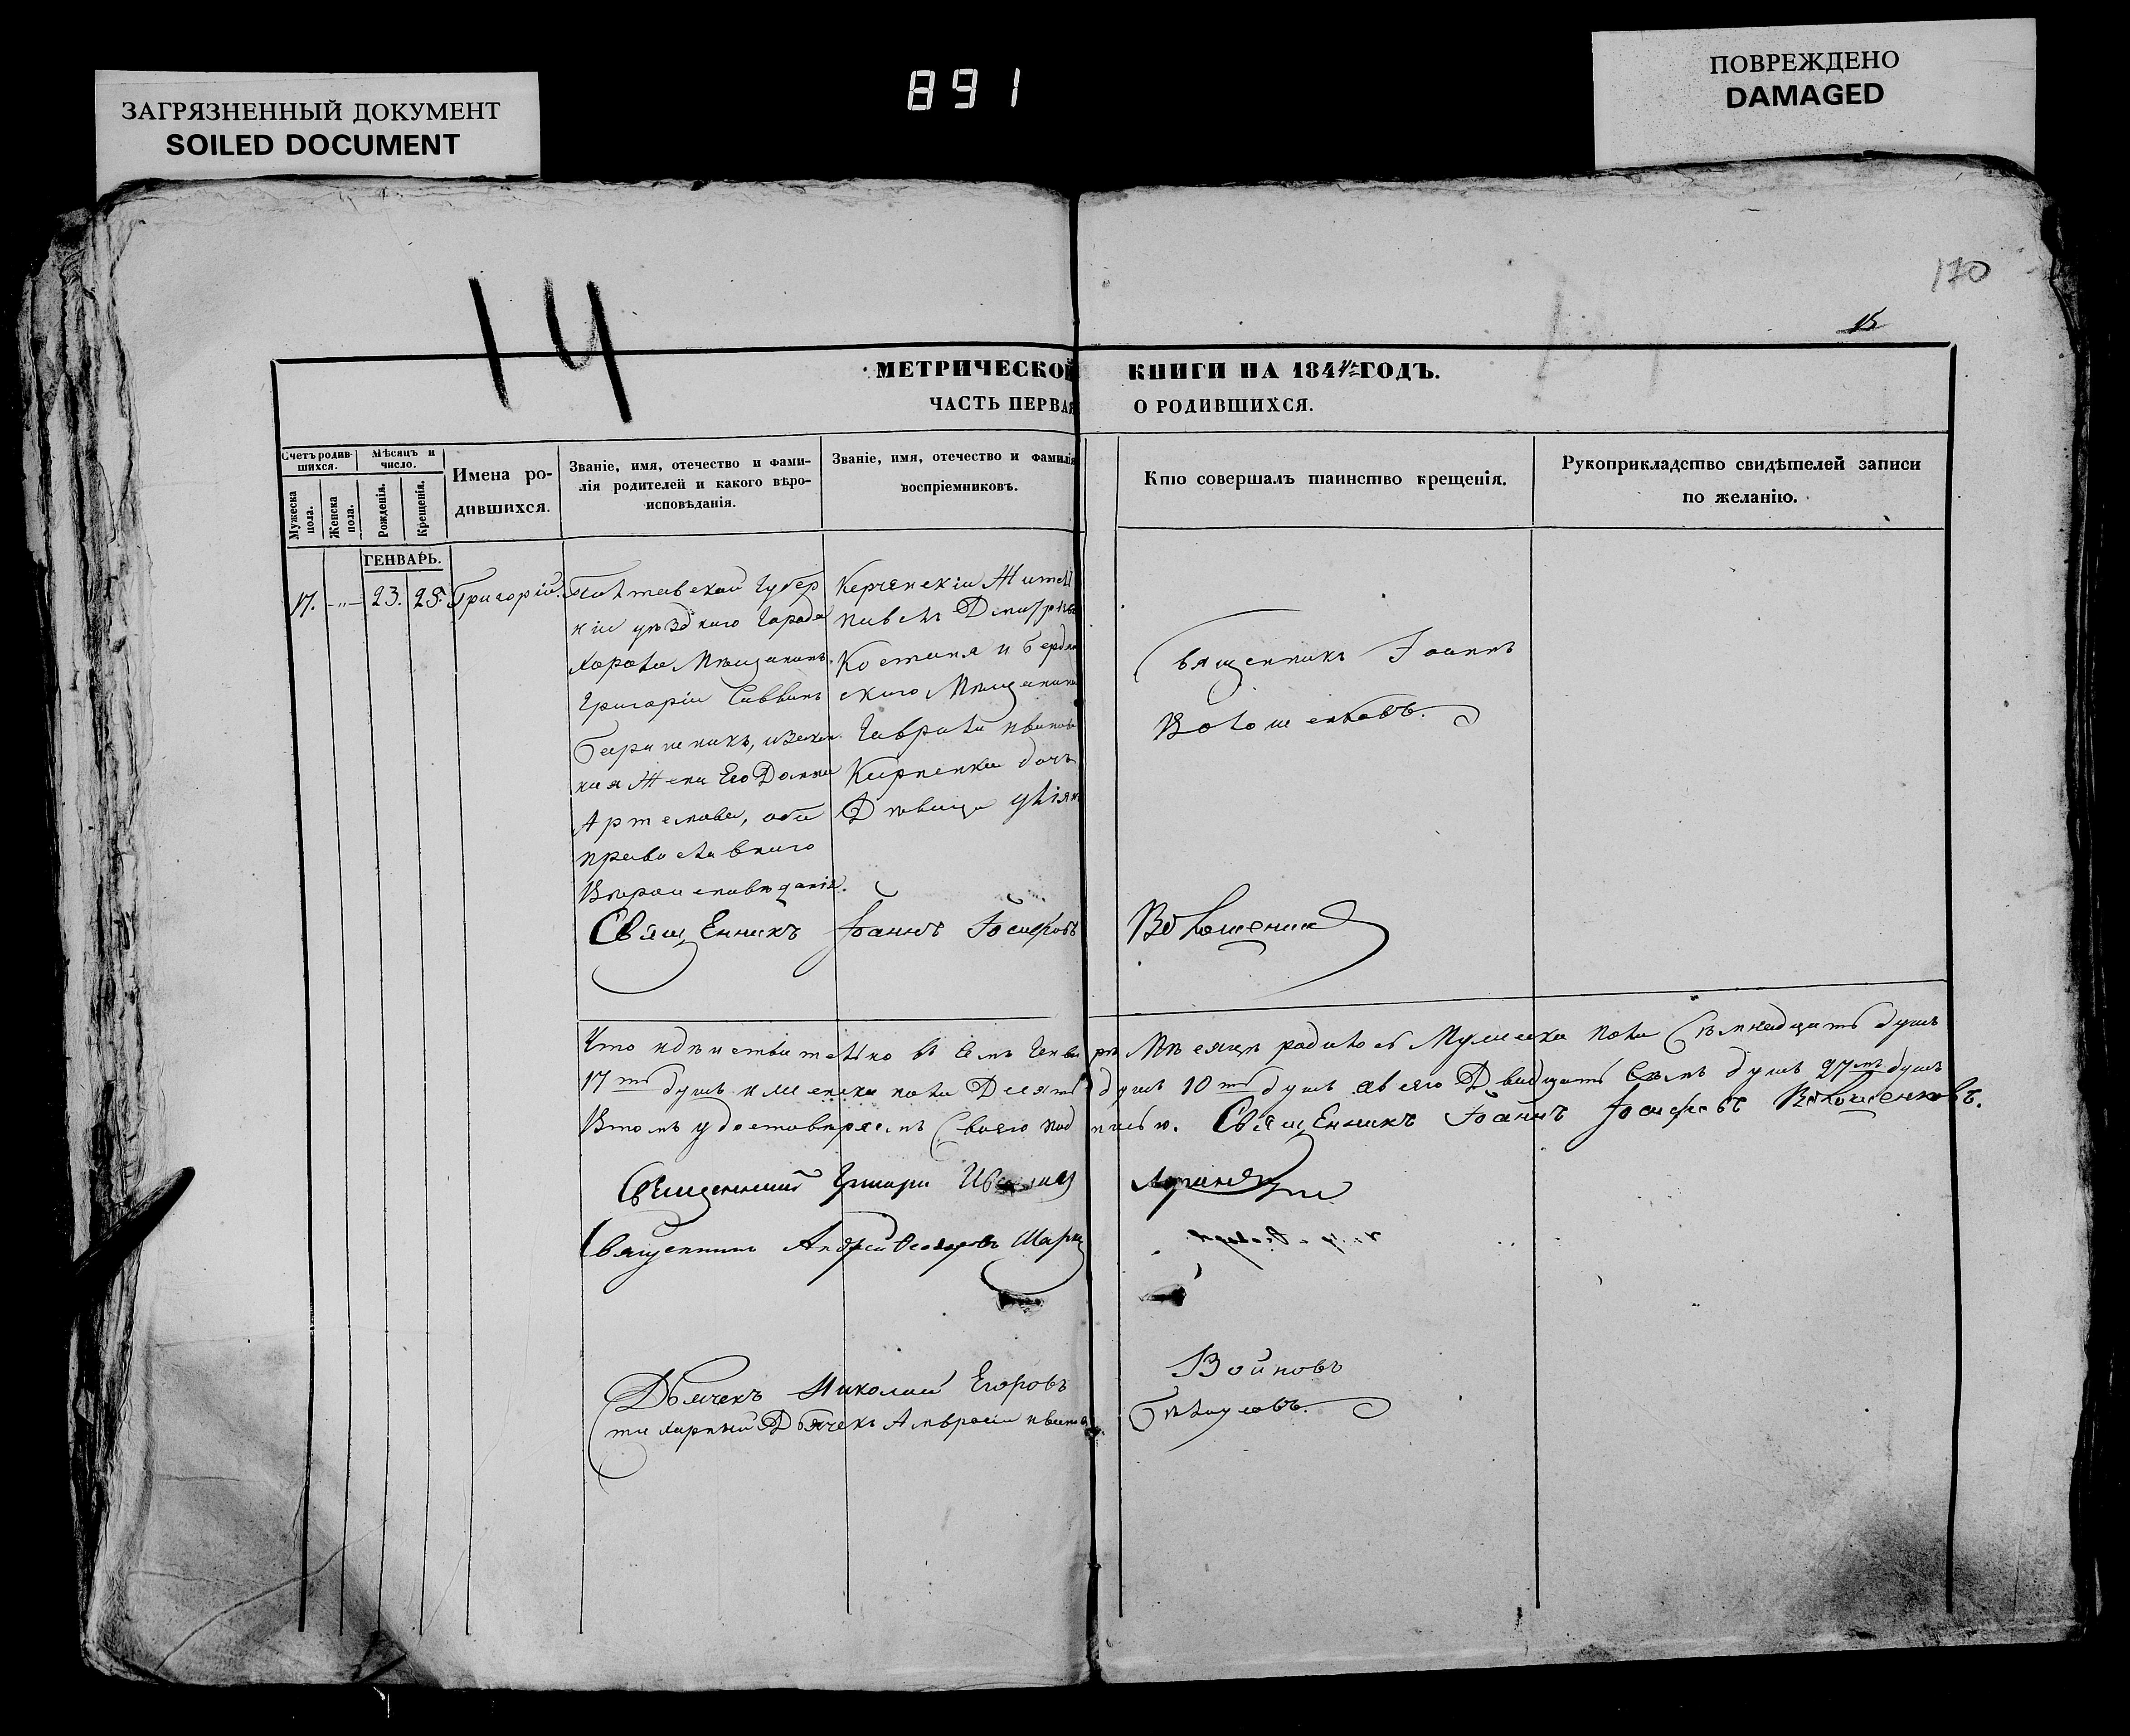 ЗАГРЯЗНЕННЫЙ ДОКУМЕНТ
SOILED DOCUMENT
891
ПОВРЕЖДЕНО
DAMAGED
170
15
14
МЕТРИЧЕСКОЙ КНИГИ НА 1844 ГОДЪ.
ЧАСТЬ ПЕРВАЯ О РОДИВШИХСЯ.
Счетъ родив-
шихся.
Мужеска
пола.
Женска
пола.
Мѣсяцъ и
число.
Рожденія.
Крещенія.
Имена ро-
дившихся.
Званіе, имя, отечество и фами-
лія родителей и какого вѣро-
исповѣданія.
Званіе, имя, отечество и фамилія
воспріемниковъ.
Кто совершалъ таинство крещенія.
Рукоприкладство свидѣтелей записи
по желанію.
ГЕНВАРЬ.
17. -„- 23. 25. Григорій.
Полтавской Губер
ніи уѣзднаго Города
Хорола Мѣщанинъ
Григорій Саввинъ
законная
Жена Его Домна
Артемова, оба
православнаго
Вѣроисповѣданія.
Керченскій Житель
Павелъ Дмитріевъ
Костаня и Бердян
скаго Мѣщанина
Гаврила Иванова
Кирпенка дочь
Дѣвица Уліяна
Священникъ Іоаннъ
Волошенковъ.
Священникъ Іоаннъ Іосифовъ Волошенков
Что дѣйствительно въ семъ Генварѣ Мѣсяцѣ родилось Мужеска пола Семнадцать душъ
17ть душъ и женска пола Десять душъ 10ть душъ а всего Двадцать Семь душъ 27мь душъ
Втомъ удостовѣряемъ Своею подписью. Священникъ Іоаннъ Іосифовъ Волошенковъ.
Священникъ Григорій
Священникъ Андрей Феодоровъ
Дьячекъ Николай Егоровъ Войновъ
Дьячекъ Амвросій Иванов